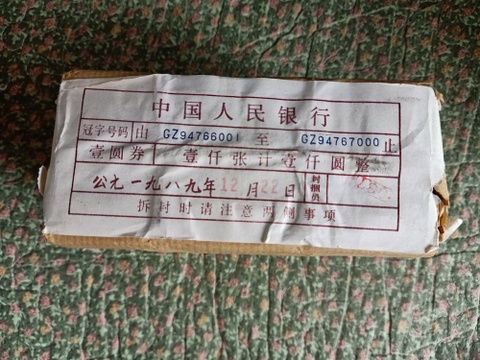 中国人民银行
冠字号码 由 GZ94766001 至 GZ94767000 止
壹圆券 壹仟张计壹仟圆整
公元一九八九年12月22日 封捆员
拆封时请注意两侧事项